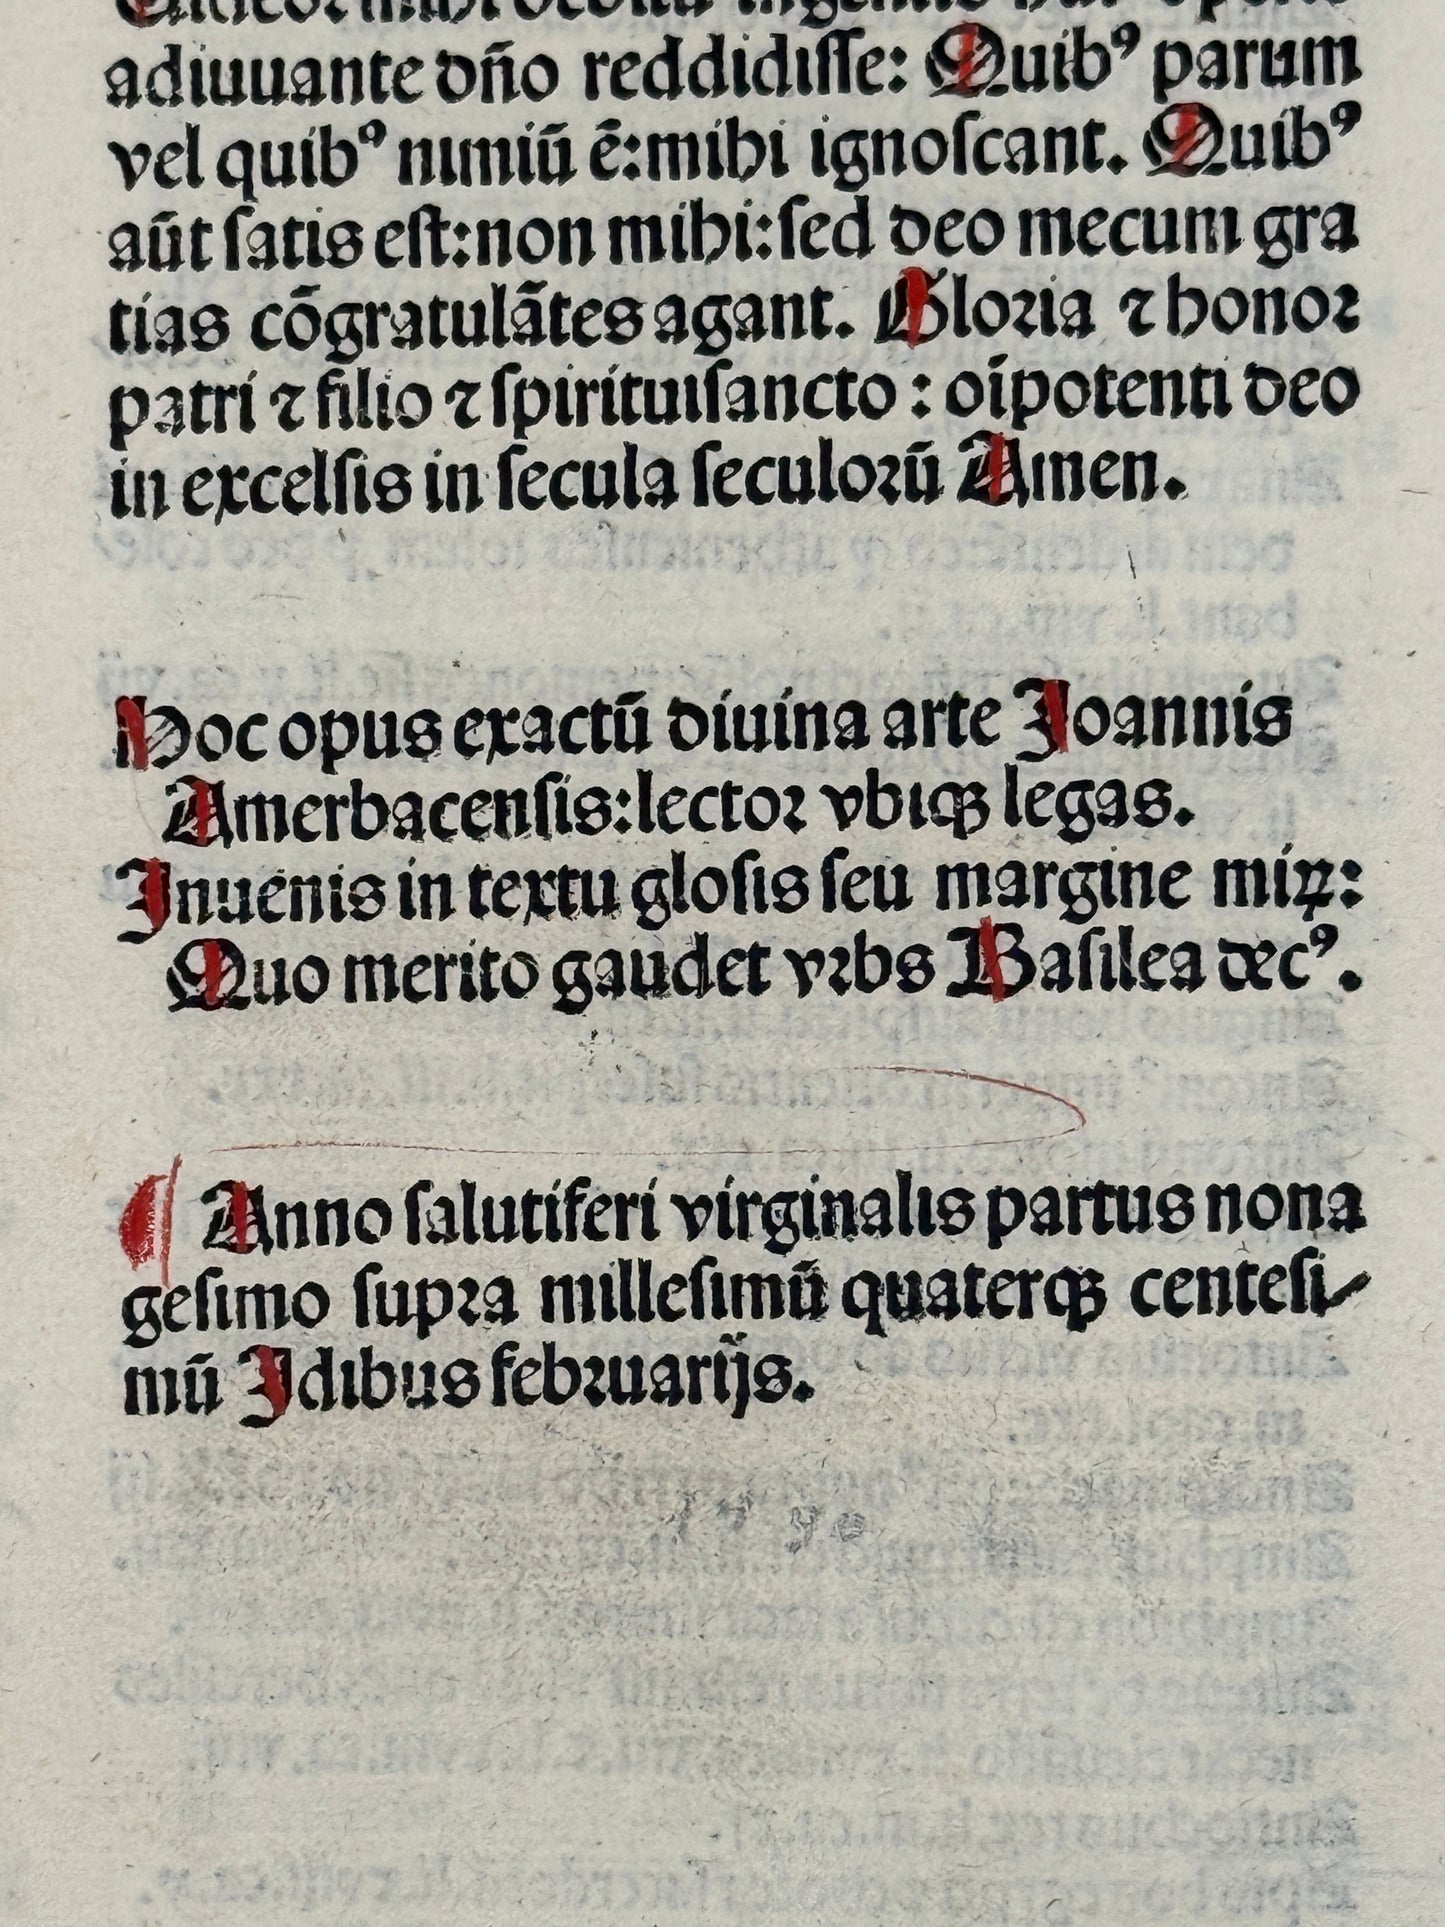 adiuuante dño reddidiſſe: Quibꝰ parum
vel quibꝰ nimiū ē: mihi ignoſcant. Quibꝰ
aūt ſatis eſt: non mihi: ſed deo mecum gra
tias cōgratulātes agant. Gloꝛia ⁊ honoꝛ
patri ⁊ filio ⁊ ſpirituiſancto : oī̄potenti deo
in excelſis in ſecula ſeculoꝛū Amen.
Hoc opus exactū diuina arte Joannis
Amerbacenſis: lectoꝛ vbiqꝫ legas.
Inuenis in textu gloſis ſeu margine miꝝ:
Quo merito gaudet vꝛbs Baſilea decꝰ.
¶ Anno ſalutiferi virginalis partus nona
geſimo ſupꝛa milleſimū quaterqꝫ centeſi⸗
mū Idibus febꝛuarijs.
1490